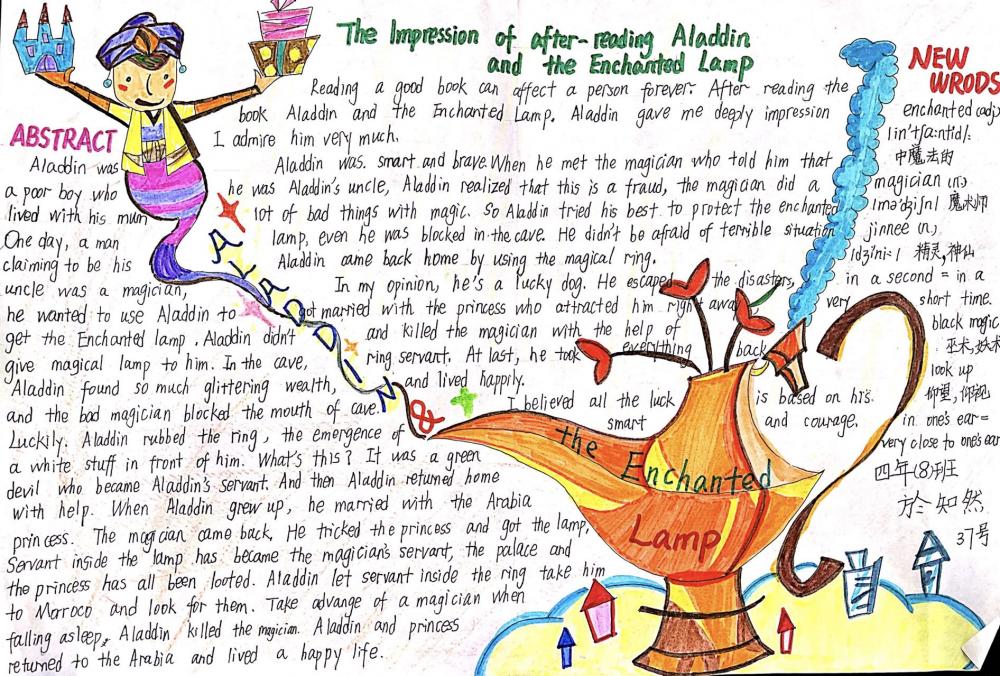 The Impression of after-reading Aladdin
and the Enchanted Lamp
Reading a good book can affect a person forever. After reading the
book Aladdin and the Enchanted Lamp. Aladdin gave me deeply impression
I admire him very much.
Aladdin was. smart and brave. When he met the magician who told him that
he was Aladdin's uncle, Aladdin realized that this is a fraud, the magician did a
lot of bad things with magic. So Aladdin tried his best to protect the enchanted
lamp, even he was blocked in the cave. He didn't be afraid of terrible situation
Aladdin came back home by using the magical ring.
In my opinion, he's a lucky dog. He escaped the disasters,
got married with the princess who attracted him right away very
and killed the magician with the help of
ring servant. At last, he took everything back
and lived happily.
I believed all the luck is based on his
smart and courage.
ABSTRACT
Aladdin was
a poor boy who
lived with his mum
One day, a man
claiming to be his
uncle was a magician,
he wanted to use Aladdin to
get the Enchanted lamp, Aladdin didn't
give magical lamp to him. In the cave,
Aladdin found so much glittering wealth,
and the bad magician blocked the mouth of cave.
Luckily. Aladdin rubbed the ring, the emergence of
a white stuff in front of him. What's this? It was a green
devil who became Aladdin's servant. And then Aladdin returned home
with help. When Aladdin grew up, he married with the Arabia
princess. The magician came back, He tricked the princess and got the lamp,
Servant inside the lamp has became the magician's servant, the palace and
the princess has all been looted. Aladdin let servant inside the ring take him
to Morroco and look for them. Take advange of a magician when
falling asleep, Aladdin killed the magician. Aladdin and princess
returned to the Arabia and lived a happy life.
ALADDIN
&
the Enchanted
Lamp
NEW
WRODS
enchanted adj.
/in'tʃa:ntid/:
中魔法的
magician (n.)
/mə'dʒiʃn/ 魔术师
jinnee (n.)
/dʒi'ni:/ 精灵,神仙
in a second = in a
short time.
black magic
巫术,妖术
look up
仰望,仰视
in one's ear=
very close to one's ear
四年(8)班
於知然
37号